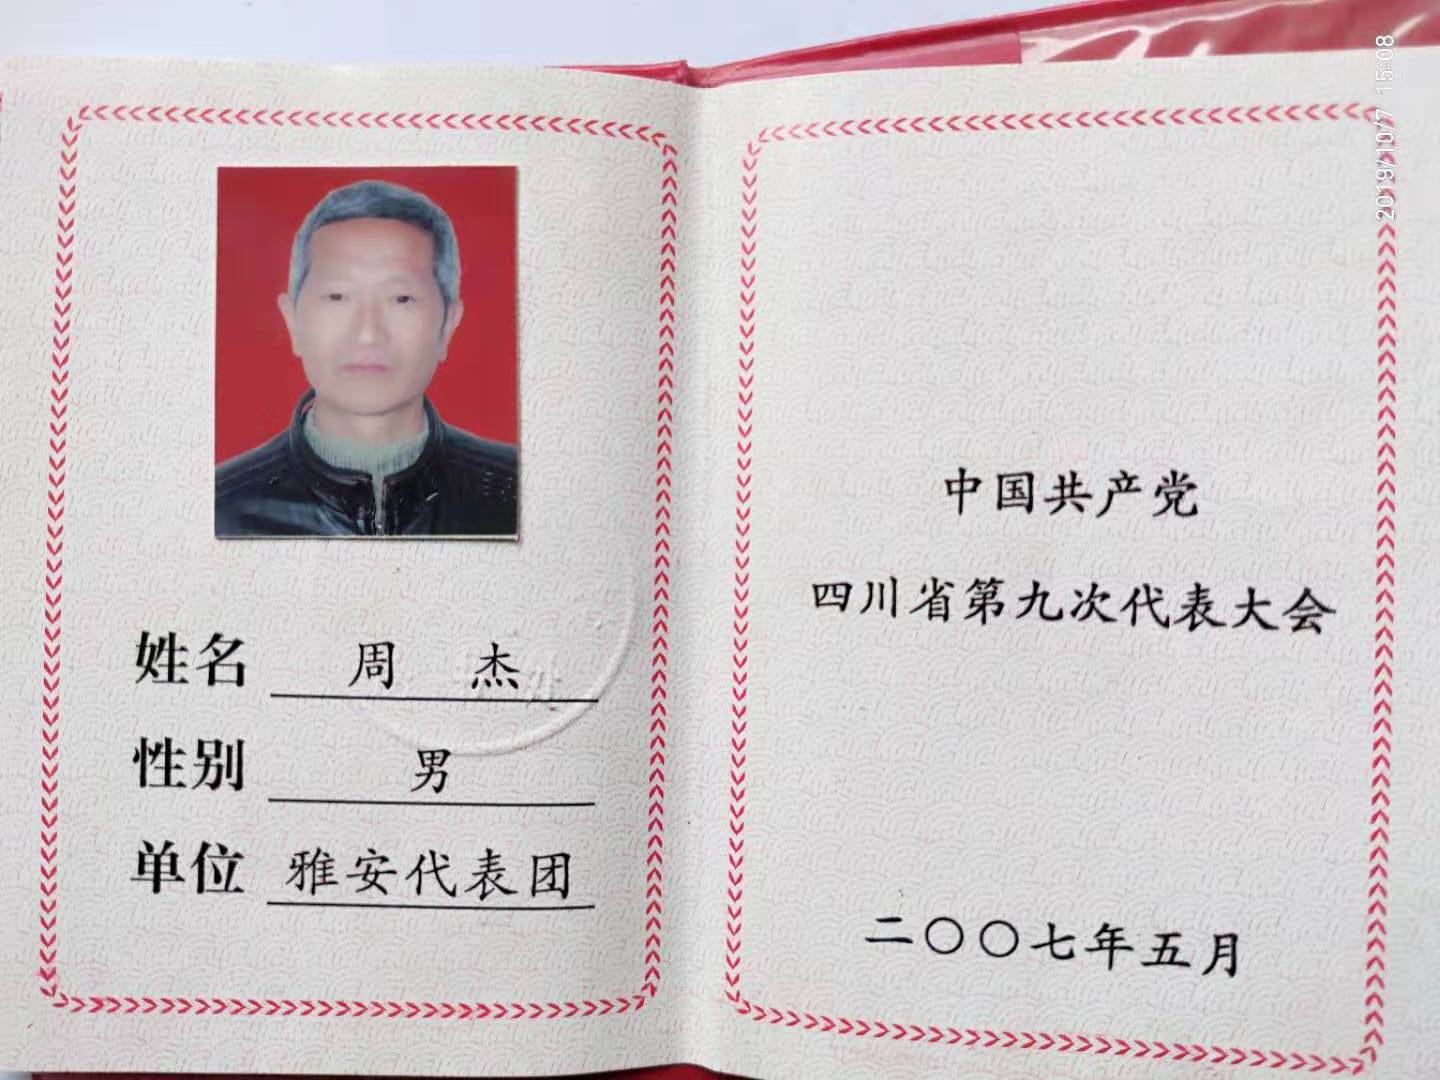 姓名 周 杰
性别 男
单位 雅安代表团
中国共产党
四川省第九次代表大会
二〇〇七年五月
2019/10/7 15:08